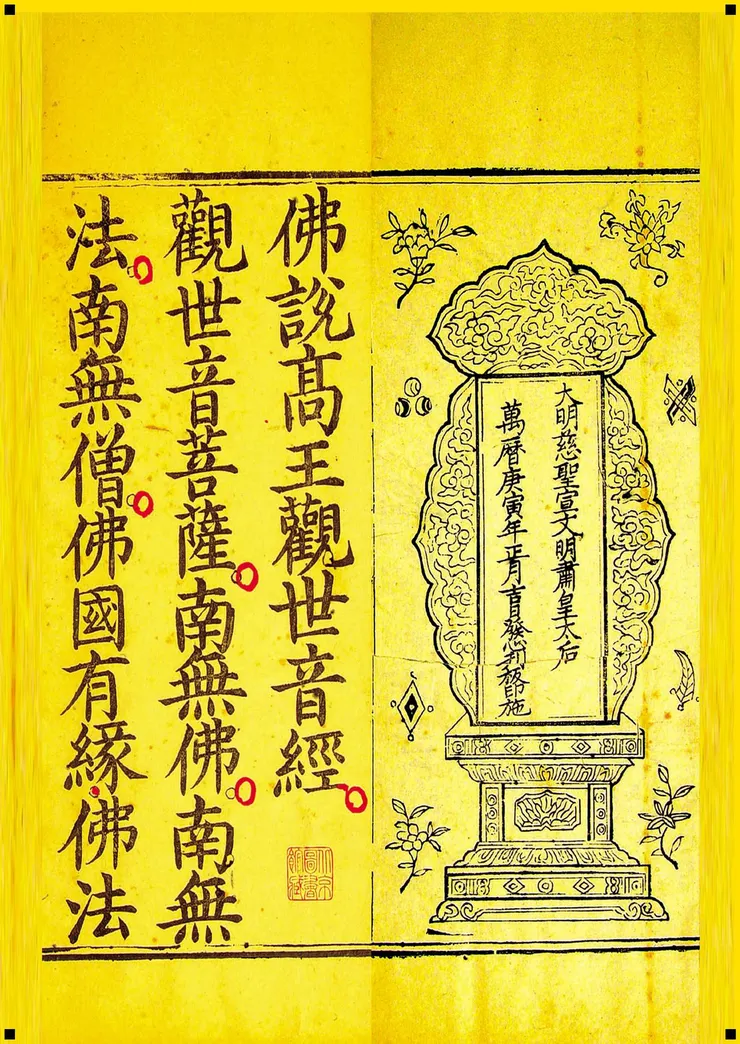 大明慈聖宣文明肅皇太后
萬曆庚寅年正月吉日發心刊板印施
佛說髙王觀世音經。
北京圖書館藏
觀世音菩薩。南無佛。南無
法。南無僧。佛國有緣佛法